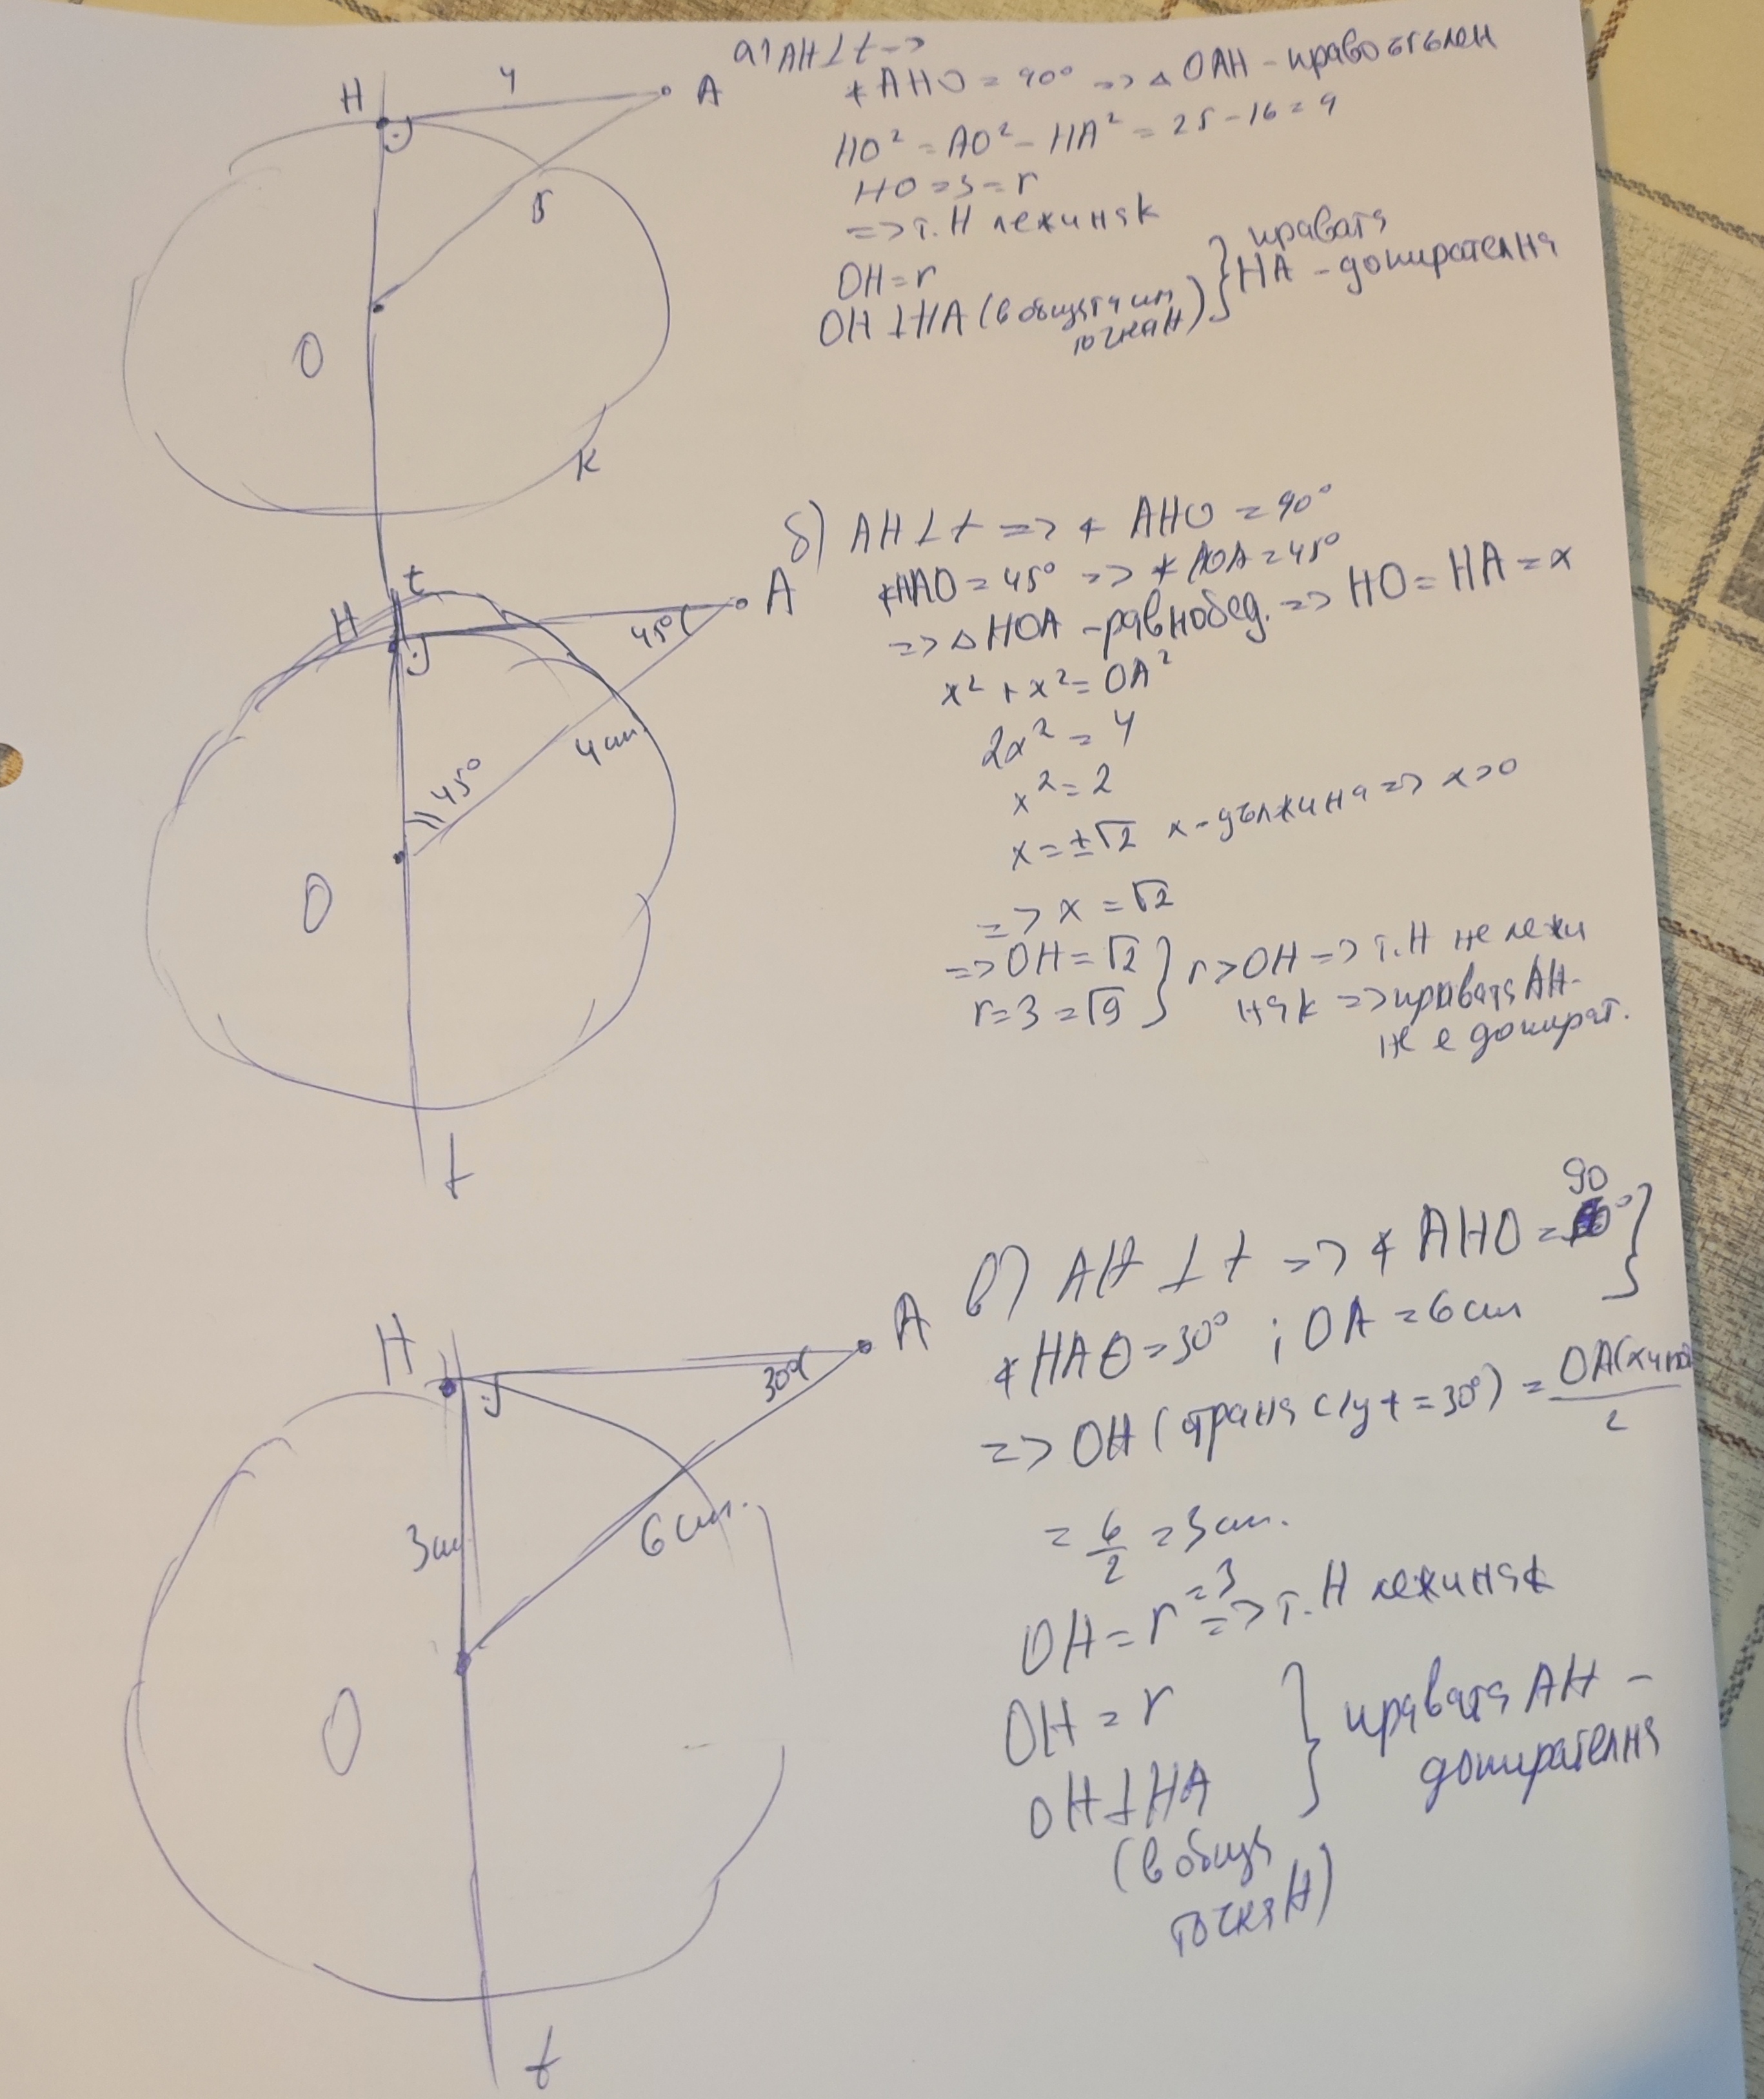 H 4 A
5
O
K
а) AH⊥t =>
∢AHO = 90° => △OAH - правоъгълен
HO² = AO² - HA² = 25 - 16 = 9
HO = 3 = r
=> т. H лежи на k
OH = r
OH⊥HA (в общата им точка H) } правата HA - допирателна
t
H A
45°
4 cm.
45°
O
t
б) AH⊥t => ∢AHO = 90°
∢HAO = 45° => ∢AOA = 45°
=> △HOA - равнобед. => HO = HA = x
x² + x² = OA²
2x² = 4
x² = 2
x = ±√2 x - дължина => x>0
=> x = √2
=> OH = √2
r = 3 = √9 } r > OH => т. H не лежи
на k => правата AH -
не е допират.
H A
30°
3 cm
6 cm.
O
t
в) AH ⊥ t => ∢AHO = 90° }
∢HAO = 30° ; OA = 6 cm
=> OH (страна с/у ∢ = 30°) = OA(хипо)/2
= 6/2 = 3 cm.
OH = r = 3 => т. H лежи на k
OH = r
OH⊥HA } правата AH -
допирателна
(в обща
точка H)